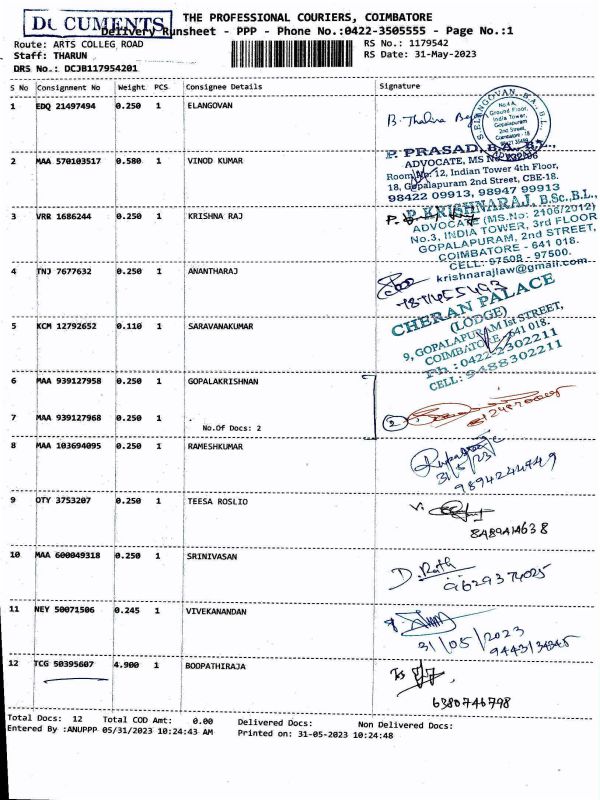 DOCUMENTS
THE PROFESSIONAL COURIERS, COIMBATORE
Delivery Runsheet - PPP - Phone No.:0422-3505555 - Page No.:1
Route: ARTS COLLEG ROAD
RS No.: 1179542
Staff: THARUN
RS Date: 31-May-2023
DRS No.: DCJB117954201
S No Consignment No Weight PCS Consignee Details Signature
1 EDQ 21497494 0.250 1 ELANGOVAN
S. ELANGOVAN, B.A., B.L.,
No.4 A,
Ground Floor,
India Tower,
Gopalapuram
2nd Street,
Coimbatore - 18
ADVOCATE
2 MAA 570103517 0.580 1 VINOD KUMAR
P. PRASAD, B.A., B.L.,
ADVOCATE, MS No
Room No: 12, Indian Tower 4th Floor,
18, Gopalapuram 2nd Street, CBE-18.
98422 09913, 98947 99913
3 VRR 1686244 0.250 1 KRISHNA RAJ
P. KRISHNARAJ, B.Sc.,B.L.,
ADVOCATE (MS.No: 2106/2012)
No.3, INDIA TOWER, 3rd FLOOR
GOPALAPURAM, 2nd STREET,
COIMBATORE - 641 018.
CELL: 97508 - 97500.
krishnarajlaw@gmail.com
4 TNJ 7677632 0.250 1 ANANTHARAJ
5 KCM 12792652 0.110 1 SARAVANAKUMAR
CHERAN PALACE
(LODGE)
9, GOPALAPURAM Ist STREET,
COIMBATORE - 641 018.
Ph : 0422-2302211
CELL: 9488302211
6 MAA 939127958 0.250 1 GOPALAKRISHNAN
7 MAA 939127968 0.250 1 .
2
No.Of Docs: 2
8 MAA 103694095 0.250 1 RAMESHKUMAR
31/5/23
9894244749
9 OTY 3753207 0.250 1 TEESA ROSLIO
8489414638
10 MAA 600049318 0.250 1 SRINIVASAN
D. Rath
9629374025
11 NEY 50071506 0.245 1 VIVEKANANDAN
31/05/2023
12 TCG 50395607 4.900 1 BOOPATHIRAJA
6380746798
Total Docs: 12 Total COD Amt: 0.00 Delivered Docs: Non Delivered Docs:
Entered By :ANUPPP 05/31/2023 10:24:43 AM Printed on: 31-05-2023 10:24:48